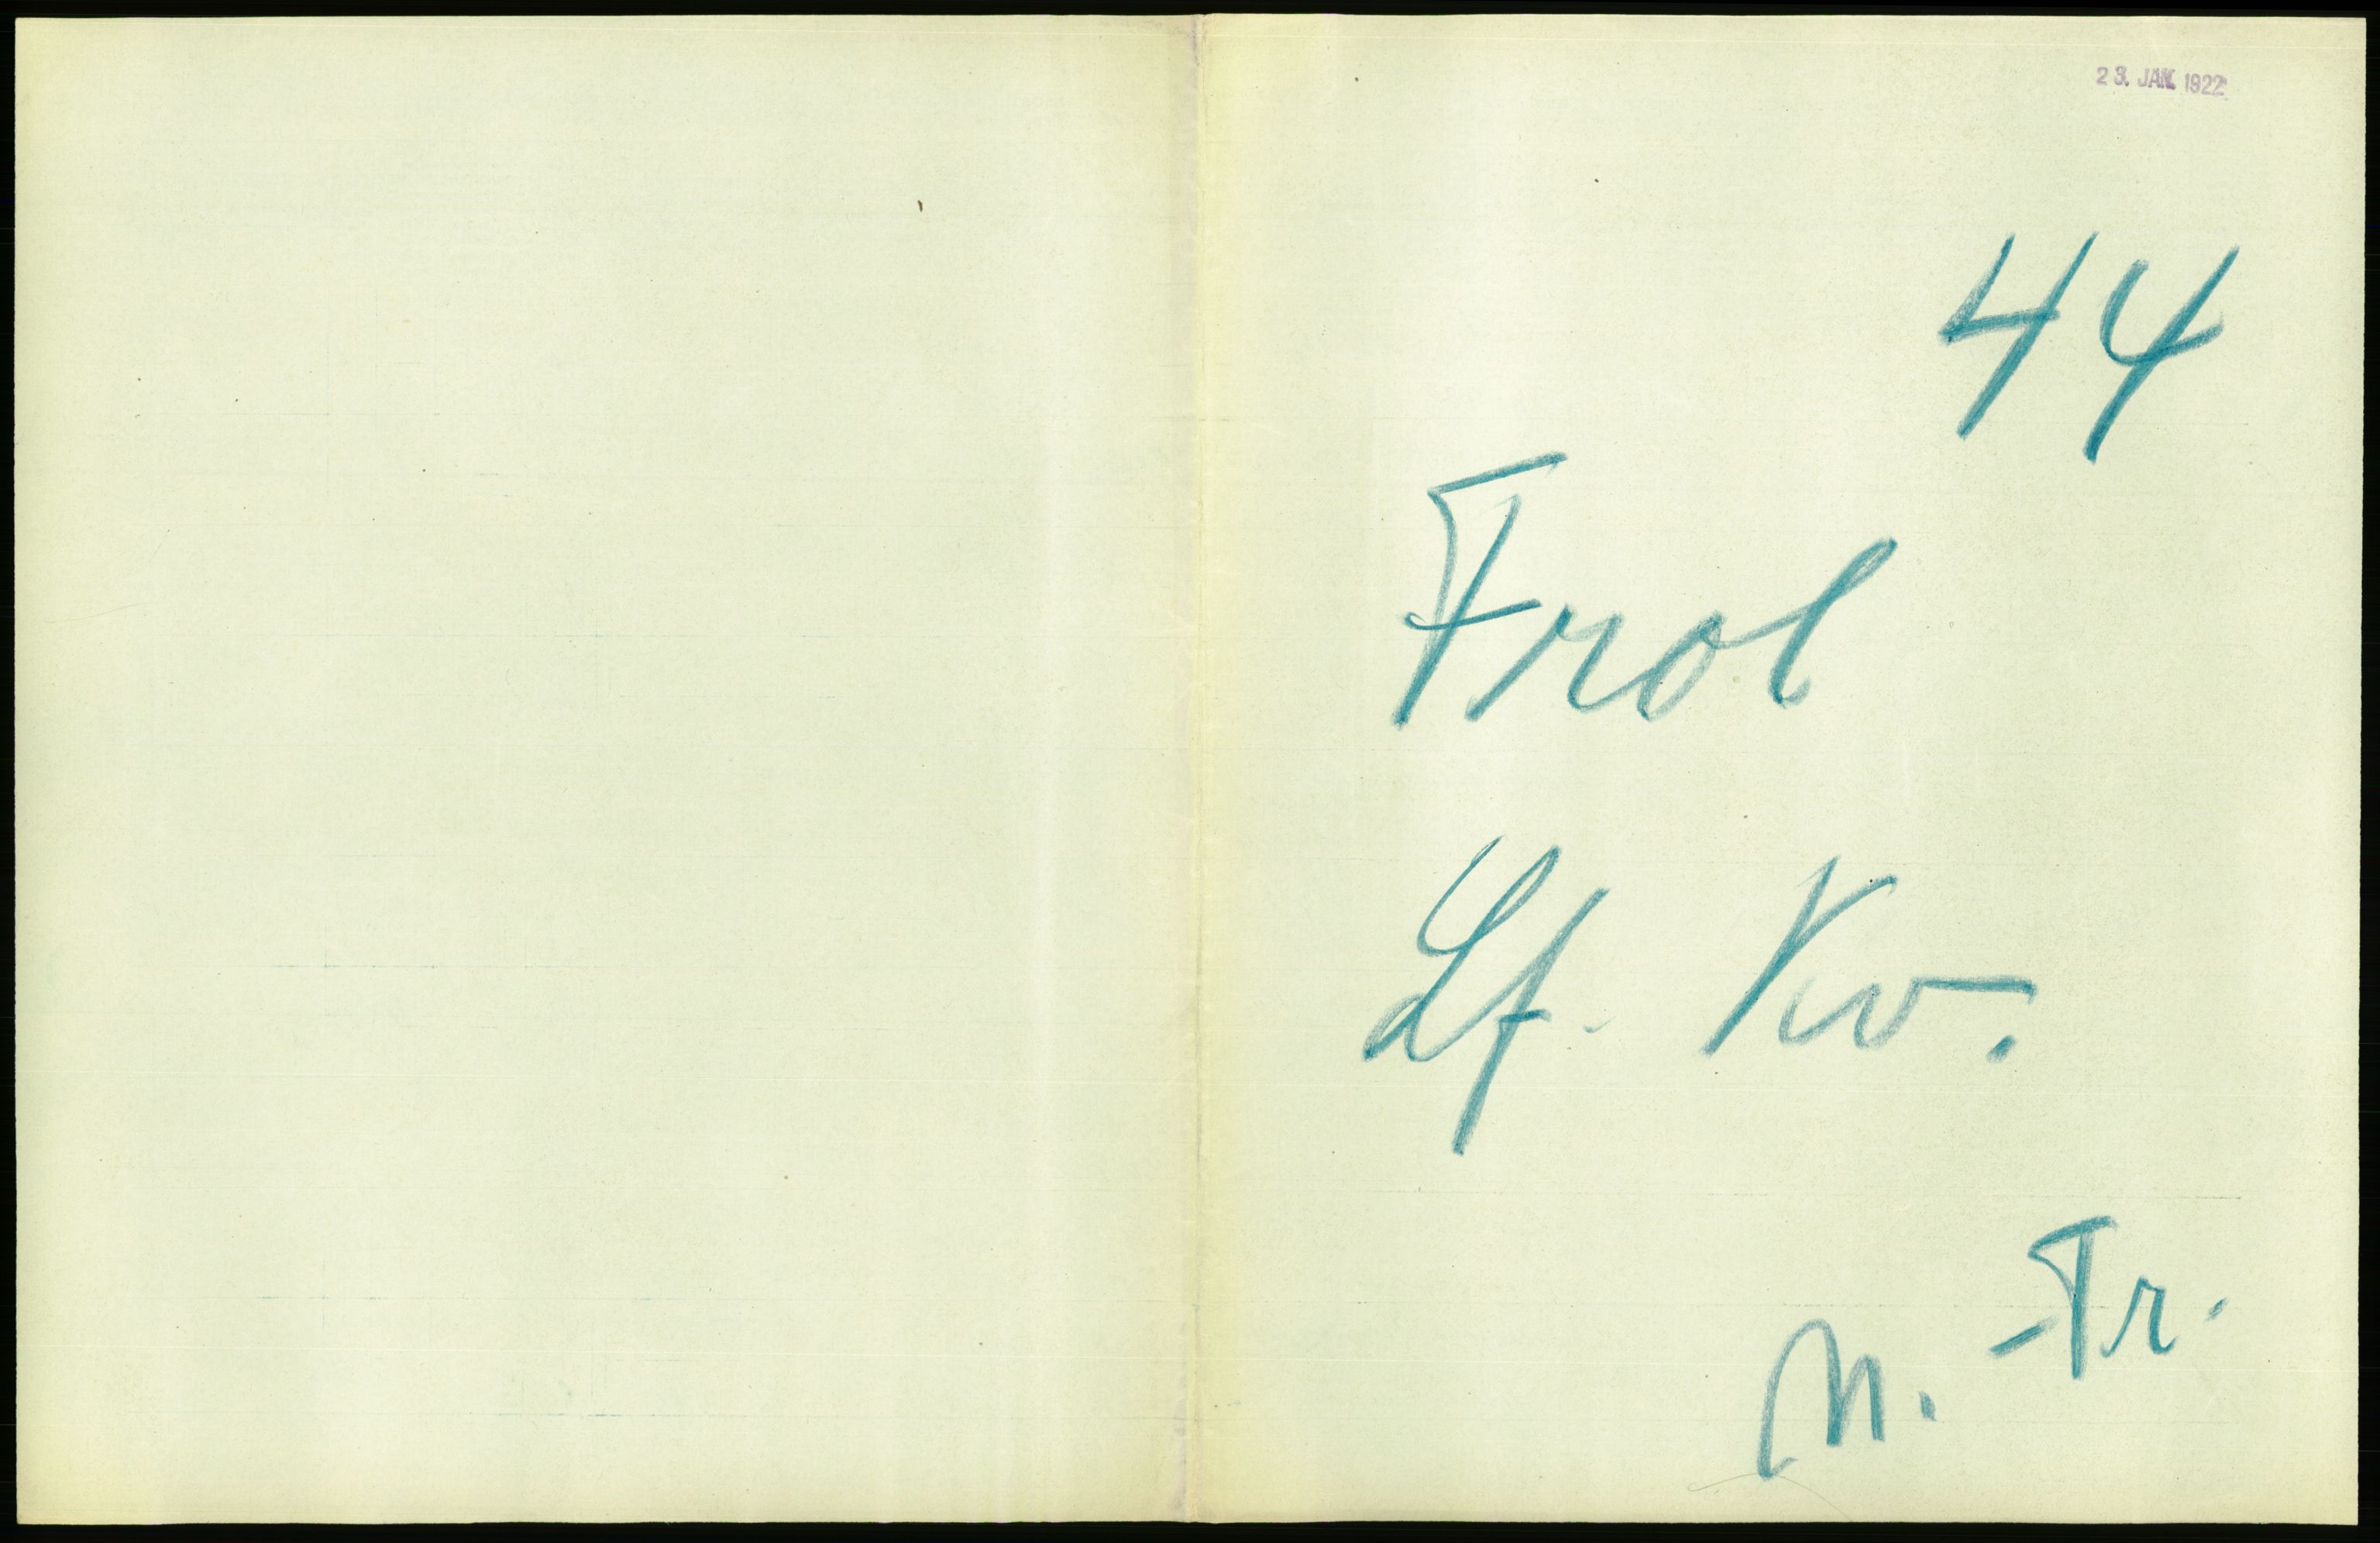 23. JAN. 1922
44
Frol
Lf. Kv.
M. - Tr.